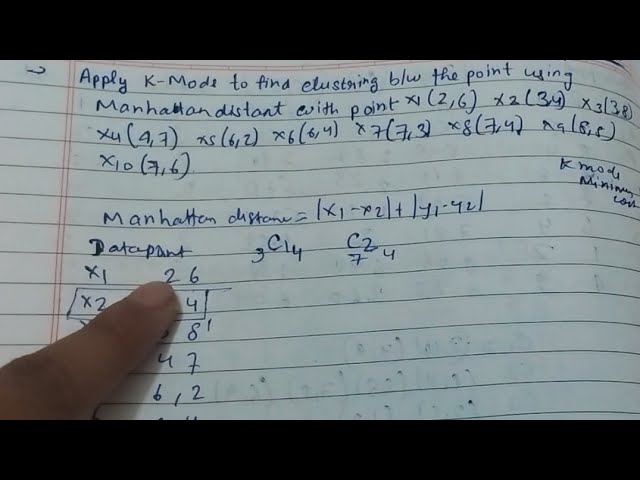 Apply K-Mode to find clustring b/w the point using
Manhattan distant with point x1(2,6) x2(3,4) x3(3,8)
x4(4,7) x5(6,2) x6(6,4) x7(7,3) x8(7,4) x9(8,5)
x10(7,6)
K mode
Minimum
cos
Manhattan distane = |x1-x2|+|y1-y2|
Datapoint 3C14 C2
7 4
x1 2 6
x2 4
8
4 7
6,2